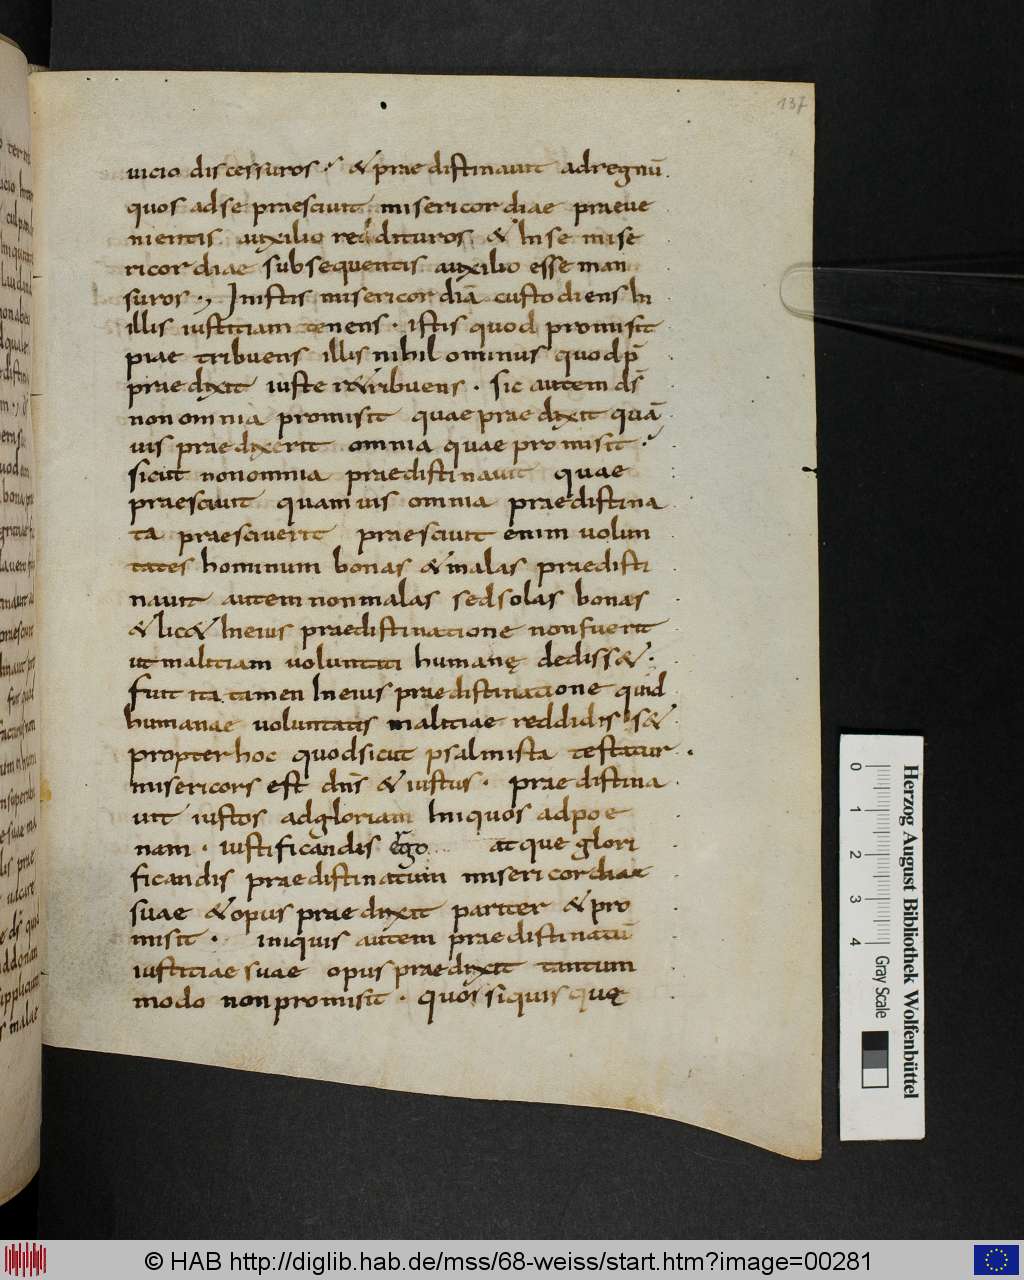 137
uicio discessuros · & praedistinauit adregnū.
quos adse praesciuit misericordiae praeue
nientis auxilio reddituros & Inse mise
ricordiae subsequentis auxilio esse man
suros ·, Inistis misericordiā custodiens In
illis iustitiam tenens · istis quod promisit
piae tribuens illis nihil ominus quod p̄
praedixit iuste r&ribuens · sic autem dš
non omnia promisit quae praedixit quā
uis praedixerit omnia quae promisit ·
sicut nonomnia praedistinauit quae
praesciuit quamuis omnia praedistina
ta praesciuerit praesciuit enim uolun
tates hominum bonas & malas praedisti
nauit autem non malas sed solas bonas
& lic& Ineius praedistinatione nonfuerit
ut malitiam uoluntati humanę dediss& ·
fuit ita tamen Ineius praedistinatione quid
humanae uoluntatis malitiae reddidis s&
propter hoc quodsicut psalmista testatur ·
misericors est dnš & iustus · praedistina
uit iustos adgloriam Iniquos adpoe
nam · iustificandis ergo atque glori
ficandis praedistinatum misericordiae
suae & opus praedixit pariter & pro
misit · iniquis autem praedistinatū
iustitiae suae opus praedixit tantum
modo non promisit · quos siquis quę
0 1 2 3 4
Gray Scale
Herzog August Bibliothek Wolfenbüttel
© HAB http://diglib.hab.de/mss/68-weiss/start.htm?image=00281